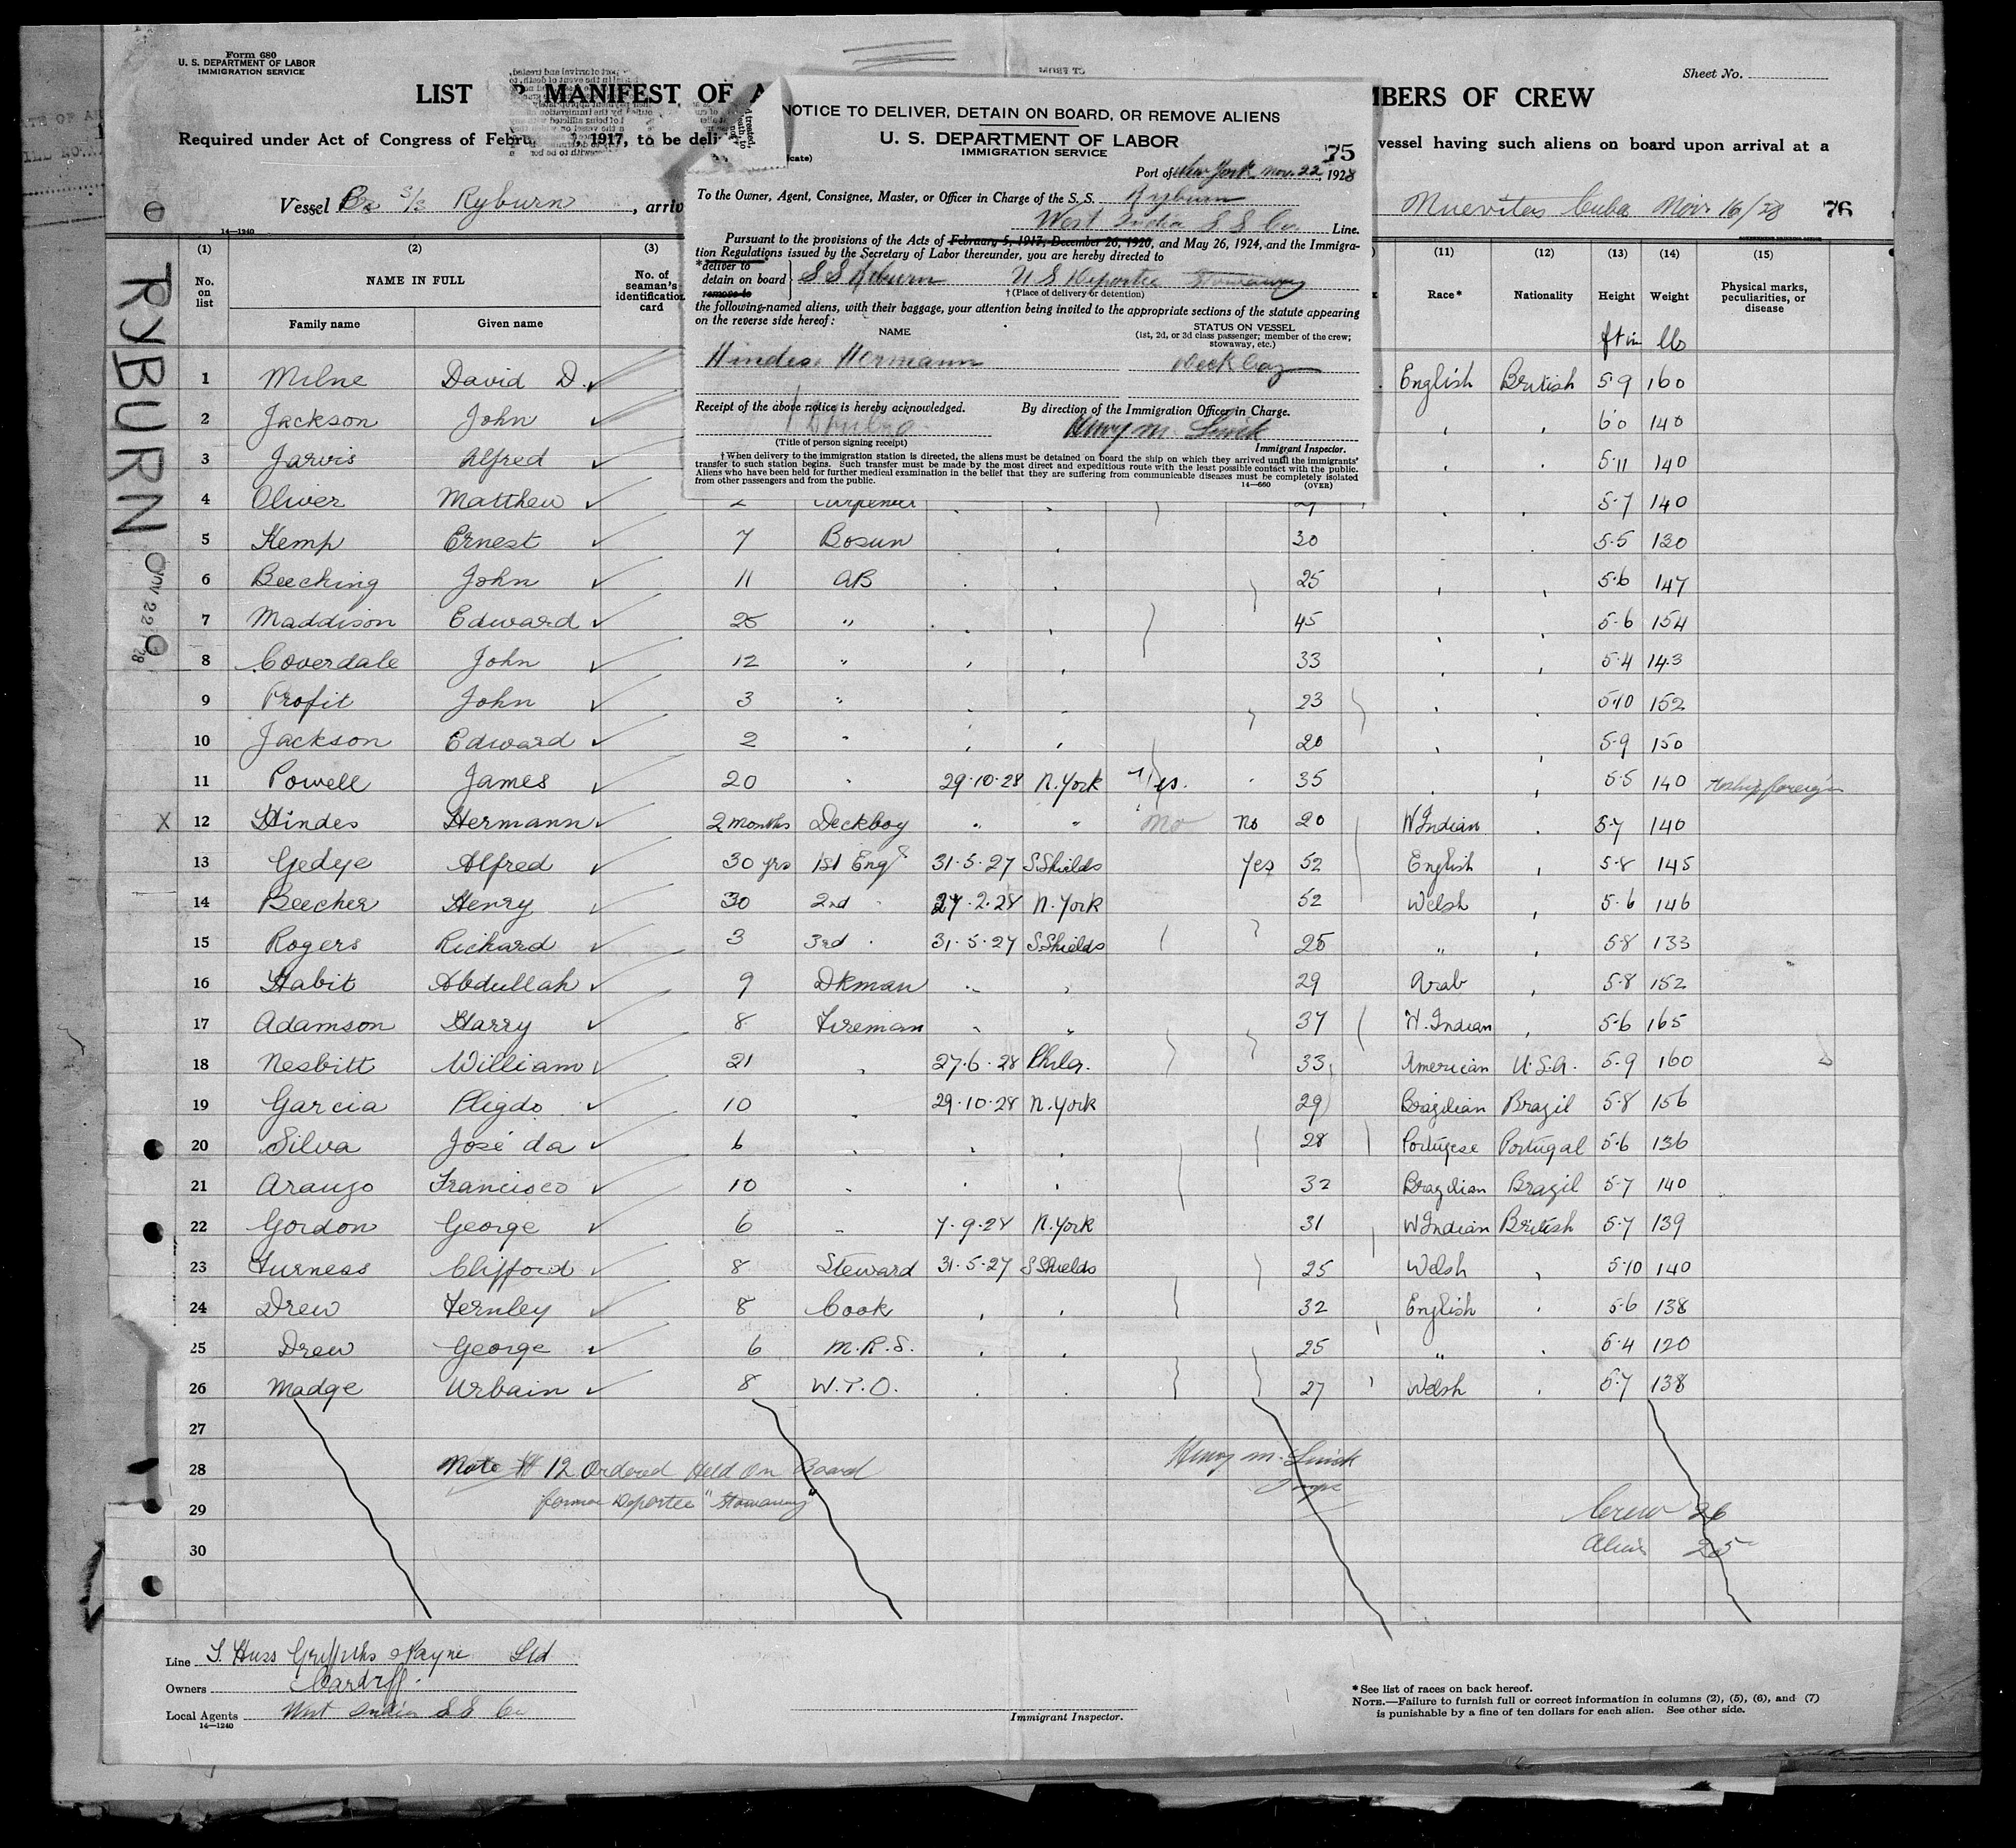 Form 680
U. S. DEPARTMENT OF LABOR
IMMIGRATION SERVICE
Sheet No.
LIST MANIFEST OF A MBERS OF CREW
Required under Act of Congress of Febru , 1917, to be deli vessel having such aliens on board upon arrival at a
Vessel Br S/S Ryburn, arriv Nuevitas Cuba Nov 16/28 76
14—1240
NOTICE TO DELIVER, DETAIN ON BOARD, OR REMOVE ALIENS
U. S. DEPARTMENT OF LABOR
IMMIGRATION SERVICE
cate) 75
Port of New York, Nov. 22, 1928
To the Owner, Agent, Consignee, Master, or Officer in Charge of the S. S. Ryburn
West India S S Co. Line.
Pursuant to the provisions of the Acts of February 5, 1917, December 26, 1920, and May 26, 1924, and the Immigra-
tion Regulations issued by the Secretary of Labor thereunder, you are hereby directed to
*deliver to
detain on board S S Ryburn U S Deportee Stowaway
remove to
† (Place of delivery or detention)
the following-named aliens, with their baggage, your attention being invited to the appropriate sections of the statute appearing
on the reverse side hereof:
NAME STATUS ON VESSEL
(1st, 2d, or 3d class passenger; member of the crew;
stowaway, etc.)
Hindes Hermann Deck boy
Receipt of the above notice is hereby acknowledged. By direction of the Immigration Officer in Charge.
Henry M. Linick
(Title of person signing receipt) Immigrant Inspector.
† When delivery to the immigration station is directed, the aliens must be detained on board the ship on which they arrived until the immigrants'
transfer to such station begins. Such transfer must be made by the most direct and expeditious route with the least possible contact with the public.
Aliens who have been held for further medical examination in the belief that they are suffering from communicable diseases must be completely isolated
from other passengers and from the public.
14—660 (OVER)
RYBURN
NOV 22 '28
(1) (2) (3) (11) (12) (13) (14) (15)
No. on list NAME IN FULL No. of seaman's identification card Race* Nationality Height Weight Physical marks, peculiarities, or disease
Family name Given name
ft in lb
1 Milne David D. English British 5 9 160
2 Jackson John 6 0 140
3 Jarvis Alfred 5·11 140
4 Oliver Matthew 2 Carpenter 29 5·7 140
5 Kemp Ernest 7 Bosun 30 5·5 130
6 Beeching John 11 AB 25 5·6 147
7 Maddison Edward 25 " 45 5·6 154
8 Coverdale John 12 " 33 5·4 143
9 Profit John 3 " 23 5·10 152
10 Jackson Edward 2 " 20 5·9 150
11 Powell James 20 " 29·10·28 N. York yes. 35 5·5 140
X 12 Hindes Hermann 2 months Deckboy " " No No 20 W Indian 5·7 140
13 Gedye Alfred 30 yrs 1st Engr 31·5·27 S Shields Yes 52 English 5·8 145
14 Beecher Henry 30 2nd 27·2·28 N. York 52 Welsh 5·6 146
15 Rogers Richard 3 3rd 31·5·27 S Shields 25 " 5·8 133
16 Habit Abdullah 9 Dkman 29 Arab 5·8 152
17 Adamson Harry 8 Fireman " " 37 W. Indian 5·6 165
18 Nesbitt William 21 27·6·28 Phila. 33 American U.S.A. 5·9 160
19 Garcia Pligdo 10 29·10·28 N. York 29 Brazilian Brazil 5·8 156
20 Silva José da 6 28 Portugese Portugal 5·6 136
21 Araujo Francisco 10 32 Brazilian Brazil 5·7 140
22 Gordon George 6 7·9·28 N. York 31 W Indian British 5·7 139
23 Furness Clifford 8 Steward 31·5·27 S Shields 25 Welsh 5·10 140
24 Drew Fernley 8 Cook 32 English 5·6 138
25 Drew George 6 M.R.S. 25 " 5·4 120
26 Madge Urbain 8 W.T.O. 27 Welsh 5·7 138
27
28 Note # 12 Ordered Held On Board Henry M. Linick
29 former Deportee "Stowaway" Insp Crew 26
30 Aliens 25
Line Griffiths Payne Ltd
Owners Cardiff.
Local Agents West India S S Co
14—1240
Immigrant Inspector.
*See list of races on back hereof.
NOTE.—Failure to furnish full or correct information in columns (2), (5), (6), and (7)
is punishable by a fine of ten dollars for each alien. See other side.